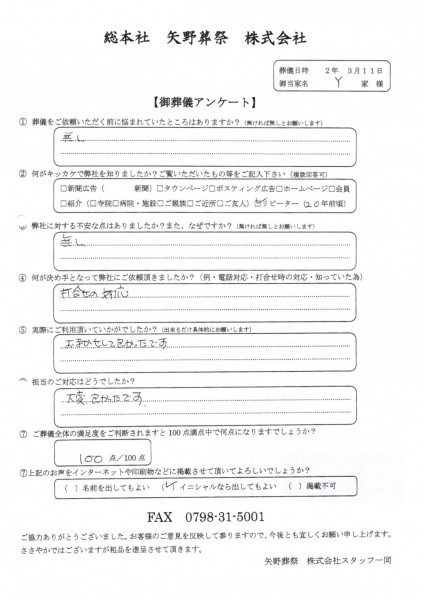 総本社 矢野葬祭 株式会社
葬儀日時 2年 3月11日
御当家名 Y 家 様
【御葬儀アンケート】
① 葬儀をご依頼いただく前に悩まれていたところはありますか?(無ければ無しとお願いします)
無し
② 何がキッカケで弊社を知りましたか?ご覧いただいたもの等をご記入下さい(複数回答可)
□新聞広告( 新聞)□タウンページ□ポスティング広告□ホームページ□会員
□紹介(□寺院□病院・施設□ご親族□ご近所□ご友人)☑リピーター(20年前頃)
弊社に対する不安な点はありましたか?また、なぜですか?(無ければ無しとお願いします)
無し
④ 何が決め手となって弊社にご依頼頂きましたか?(例・電話対応・打合せ時の対応・知っていた為)
打合せの対応
⑤ 実際にご利用頂いていかがでしたか?(出来るだけ具体的にお願いします)
お任せして良かったです
担当のご対応はどうでしたか?
大変良かったです
⑦ ご葬儀全体の満足度をご判断されますと100点満点中で何点になりますでしょうか?
100 点/100点
⑦上記のお声をインターネットや印刷物などに掲載させて頂いてよろしいでしょうか?
( )名前を出してもよい (✓)イニシャルなら出してもよい ( )掲載不可
FAX 0798-31-5001
ご協力ありがとうございました。お客様のご意見を反映して参りますので、今後とも宜しくお願い申し上げます。
ささやかではございますが粗品を進呈させて頂きます。
矢野葬祭 株式会社スタッフ一同